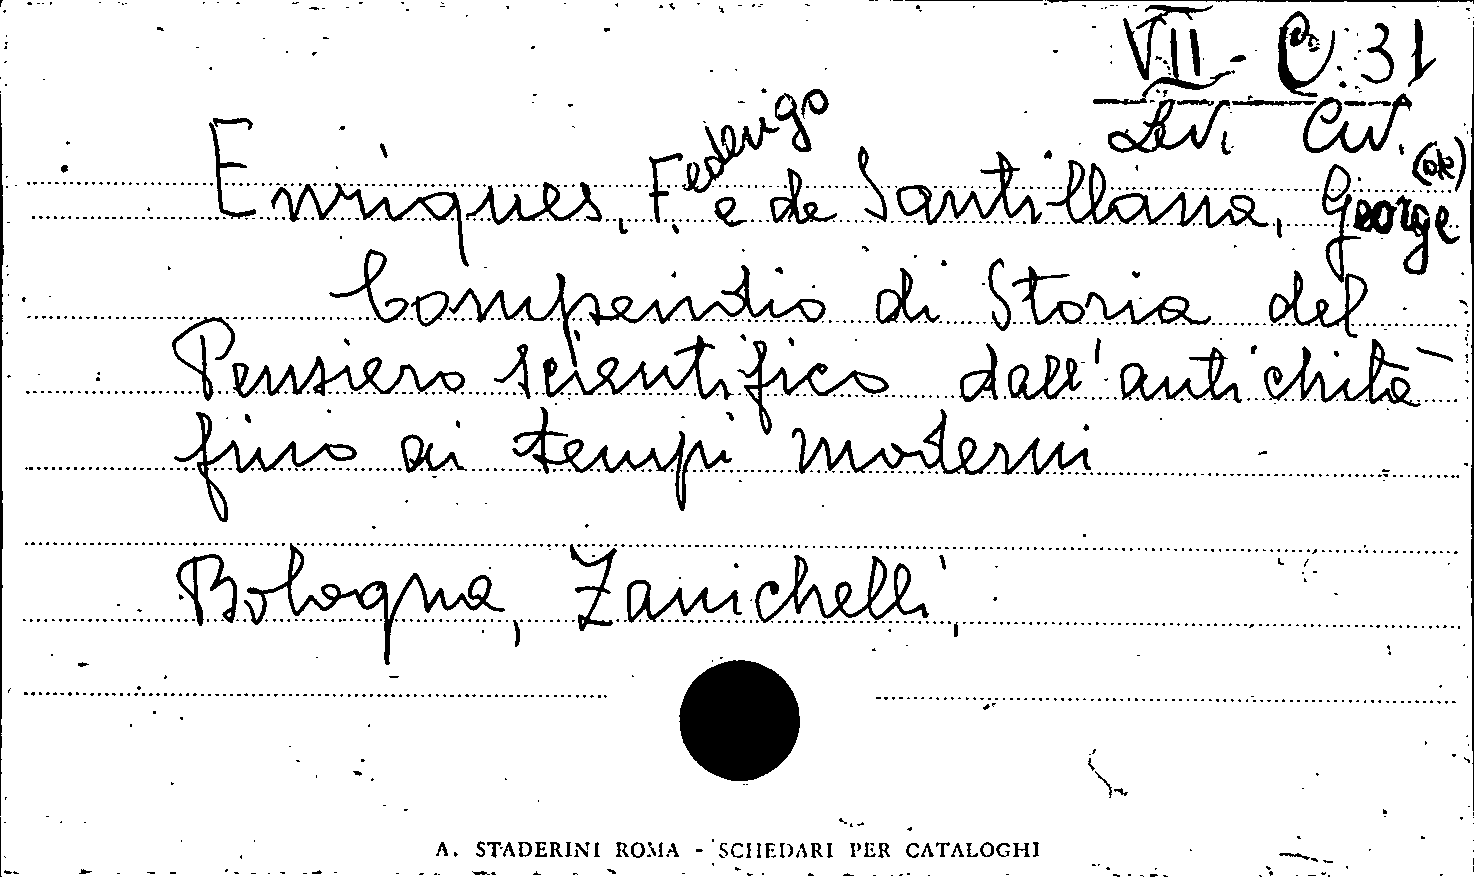 VII - C. 31
Lev. Civ.
(ok)
Enriques, F.ederigo e de Santillana, George
Compendio di Storia del
Pensiero scientifico dall'antichità
fino ai tempi moderni
Bologna, Zanichelli,
A. STADERINI ROMA - SCHEDARI PER CATALOGHI